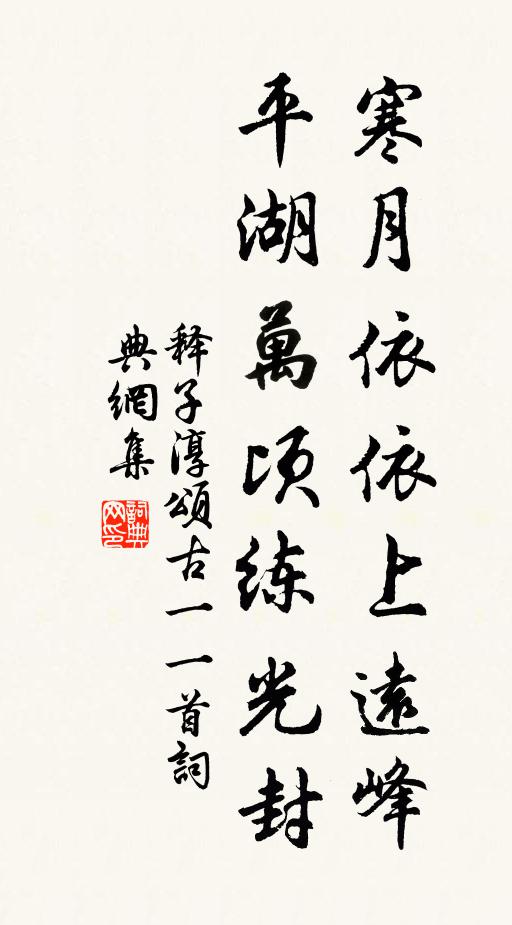 寒月依依上遠峰
平湖萬頃练光封
释子淳頌古一一首詞
典網集
詞典
网印